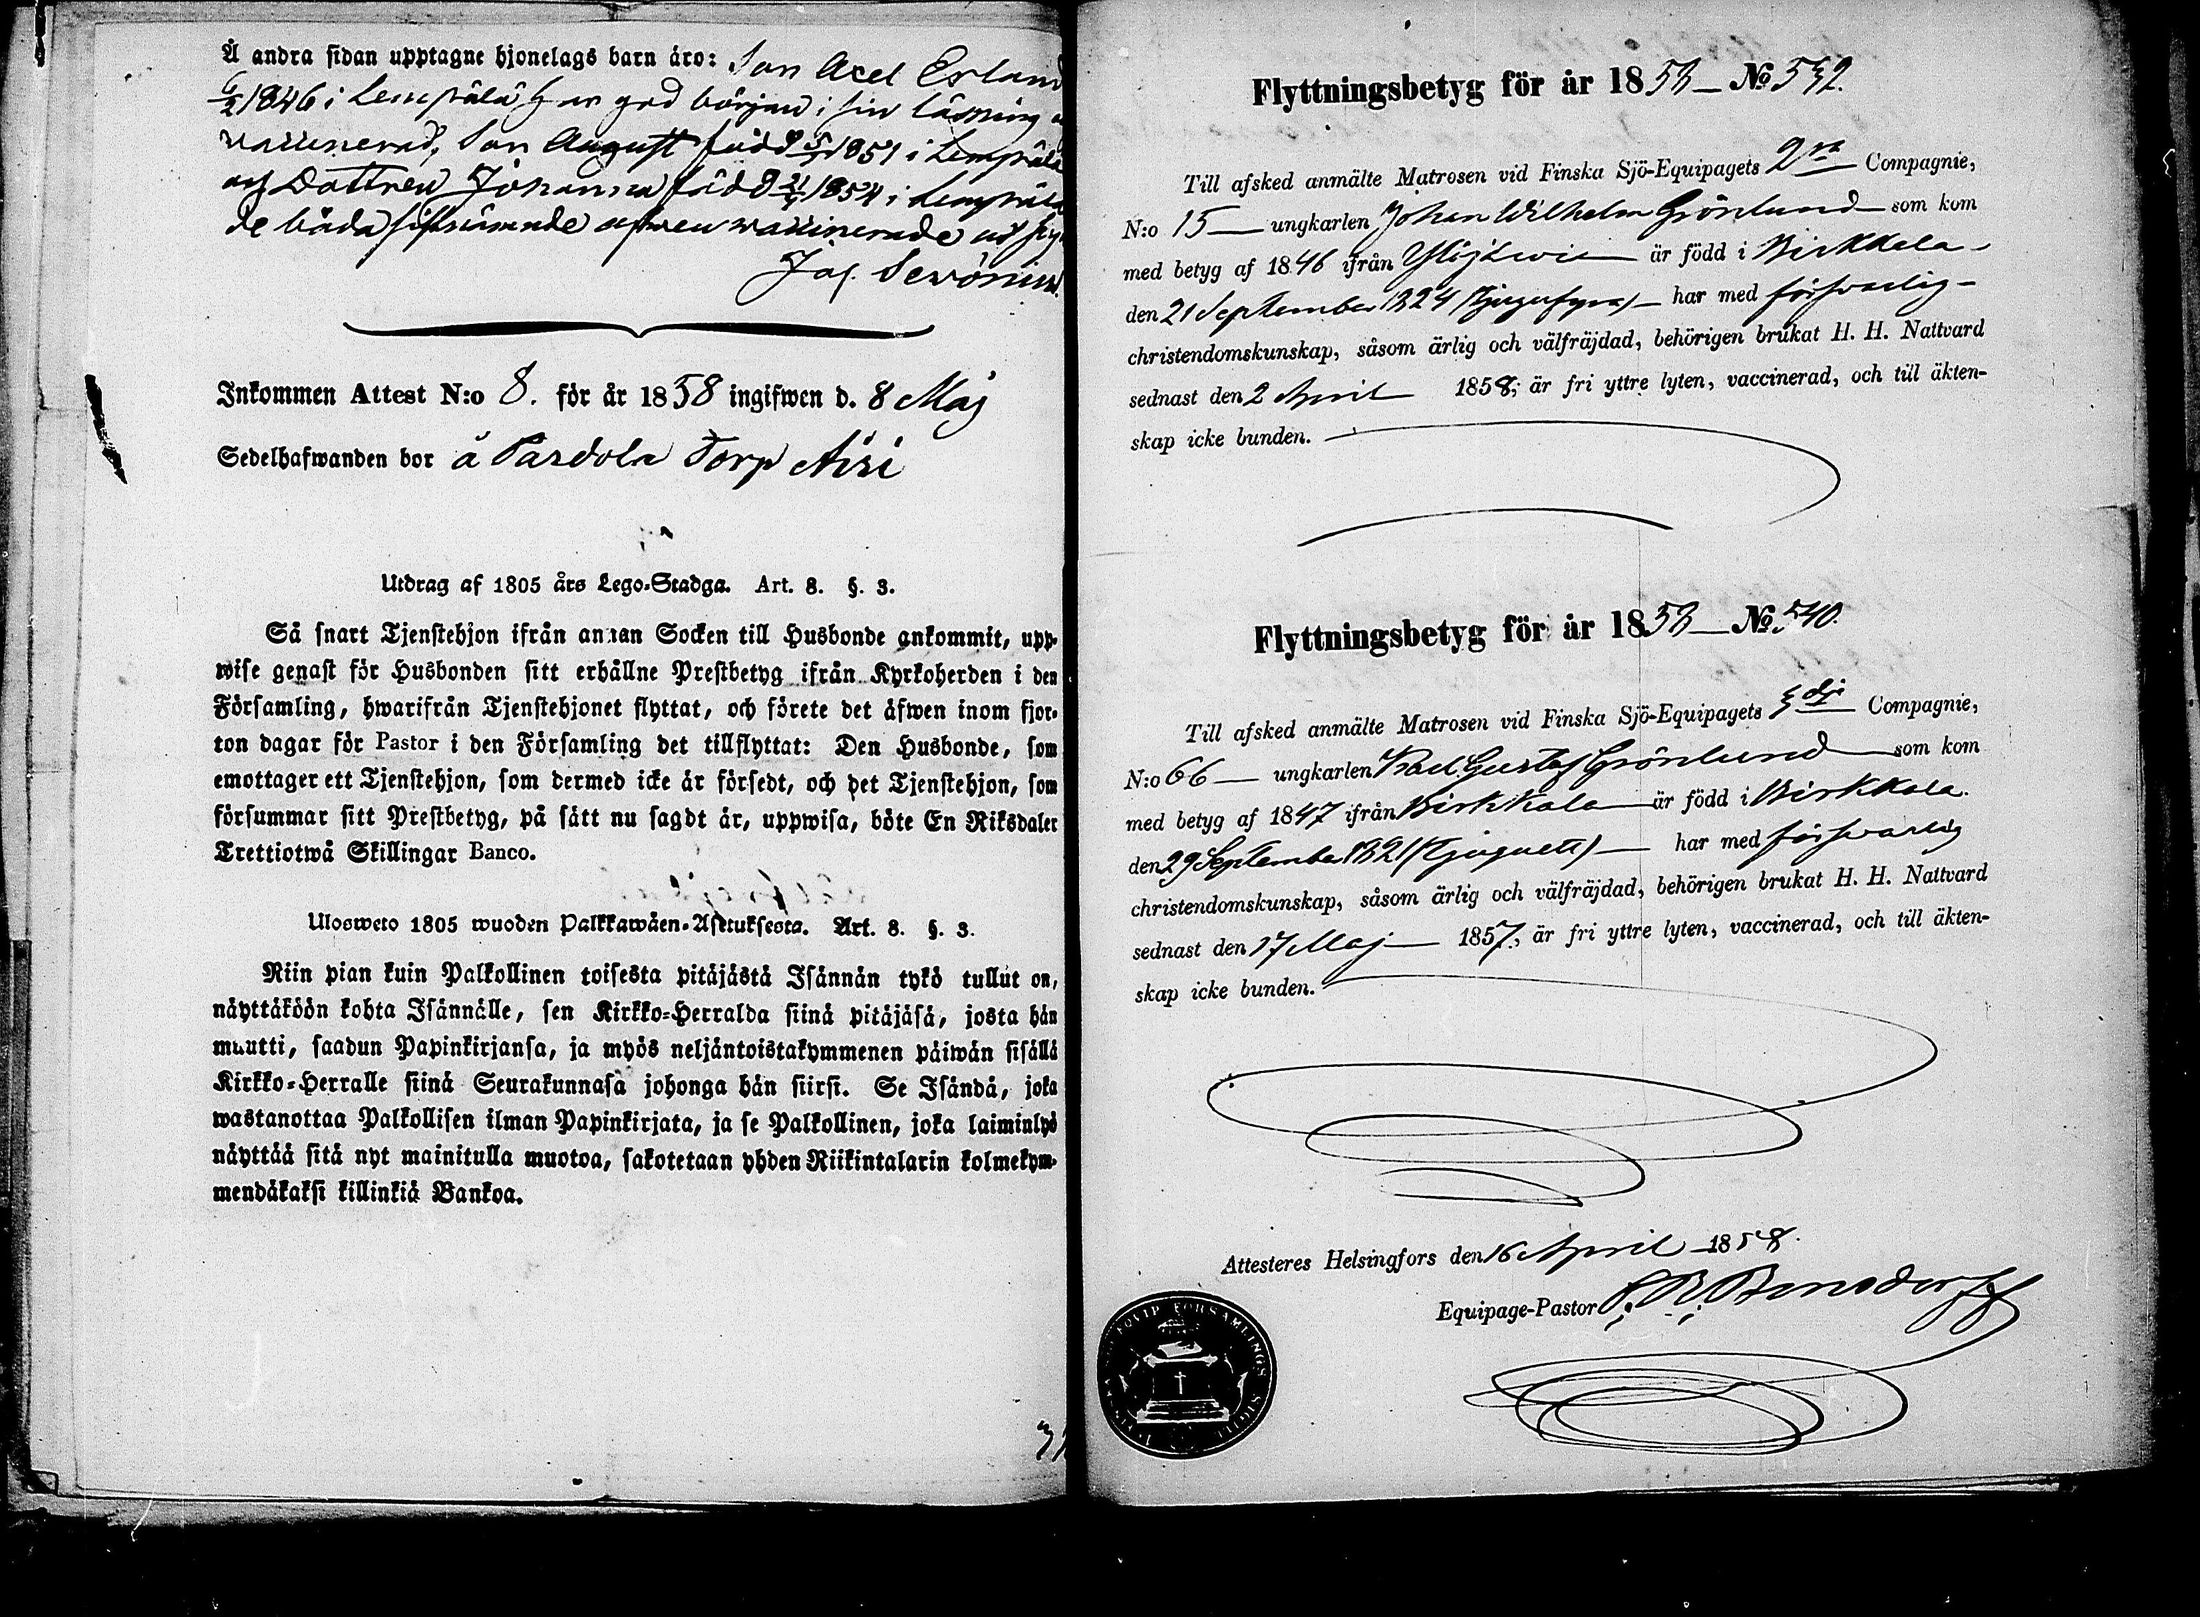 Å andra sidan upptagne hjonelags barn äro: Son Axel Erland
6/2 1846 i Lempälä har god början i sin läsning
vaccinerad, Son August född 5/5 1851 i Lempälä
och Dottren Johanna född 21/5 1854 i Lempälä
de båda sistnämnde afwen waccinerade
Jos. Servonius.
Inkommen Attest N:o 8. för år 1858 ingifwen d. 8 Maj
Sedelhafwanden bor å Pardola Torp Airi
Utdrag af 1805 års Lego-Stadga. Art. 8. §. 3.
Så snart Tjenstehjon ifrån annan Socken till Husbonde ankommit, upp-
wise genast för Husbonden sitt erhållne Prestbetyg ifrån Kyrkoherden i den
Församling, hwarifrån Tjenstehjonet flyttat, och förete det äfwen inom fjor-
ton dagar för Pastor i den Församling det tillflyttat: Den Husbonde, som
emottager ett Tjenstehjon, som dermed icke är försedt, och det Tjenstehjon, som
försummar sitt Prestbetyg, på sätt nu sagdt är, uppwisa, böte En Riksdaler
Trettiotwå Skillingar Banco.
Ulosweto 1805 wuoden Palkkawäen-Asetuksesta. Art. 8. §. 3.
Niin pian kuin Palkollinen toisesta pitäjästä Isännän tykö tullut on,
näyttäköön kohta Isännälle, sen Kirkko-Herralda siinä pitäjäsä, josta hän
muutti, saadun Papinkirjansa, ja myös neljäntoistakymmenen päiwän sisällä
Kirkko-Herralle siinä Seurakunnasa johonga hän siirsi. Se Isändä, joka
wastanottaa Palkollisen ilman Papinkirjata, ja se Palkollinen, joka laiminlyö
näyttää sitä nyt mainitulla muotoa, sakotetaan yhden Riikintalarin kolmekym-
mendäkaksi killinkiä Bankoa.
Flyttningsbetyg för år 1858 — No 532.
Till afsked anmälte Matrosen vid Finska Sjö-Equipagets 2ra Compagnie,
N:o 15 — ungkarlen Johan Wilhelm Grönlund som kom
med betyg af 1846 ifrån Ylöjärvi är född i Birkkala
den 21 September 1824 (Tjugufyra) har med försvarlig
christendomskunskap, såsom ärlig och välfräjdad, behörigen brukat H. H. Nattvard
sednast den 2 April 1858; är fri yttre lyten, vaccinerad, och till äkten-
skap icke bunden.
Flyttningsbetyg för år 1858 — No 540.
Till afsked anmälte Matrosen vid Finska Sjö-Equipagets 3dje Compagnie,
N:o 66 — ungkarlen Karl Gustaf Grönlund som kom
med betyg af 1847 ifrån Birkkala är född i Birkkala.
den 29 September 1821 (Tjuguett) — har med försvarlig
christendomskunskap, såsom ärlig och välfräjdad, behörigen brukat H. H. Nattvard
sednast den 17 Maj 1857; är fri yttre lyten, vaccinerad, och till äkten-
skap icke bunden.
Attesteres Helsingfors den 16 April 1858.
Equipage-Pastor
FÖRSAMLINGS SIGILL